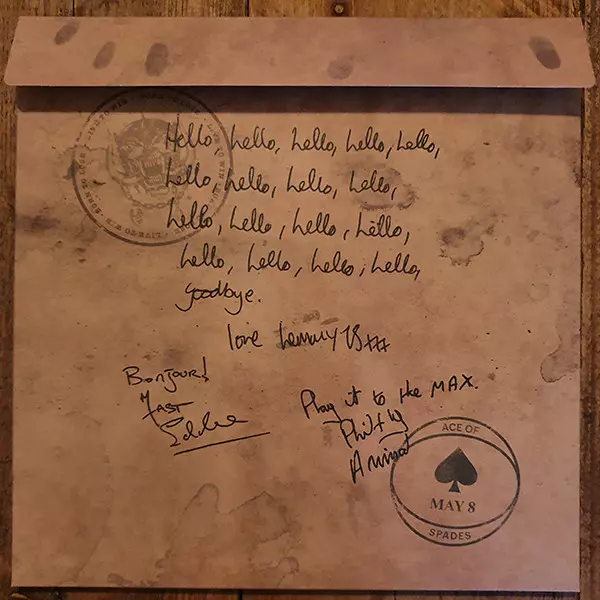 Hello hello, hello, hello, hello,
hello, hello, hello, hello,
hello, hello, hello, hello,
hello, hello, hello, hello,
goodbye.
love Lemmy xxx
Bonjour!
FAST
Eddie
Play it to the MAX.
Philthy
Animal
ACE OF
MAY 8
SPADES